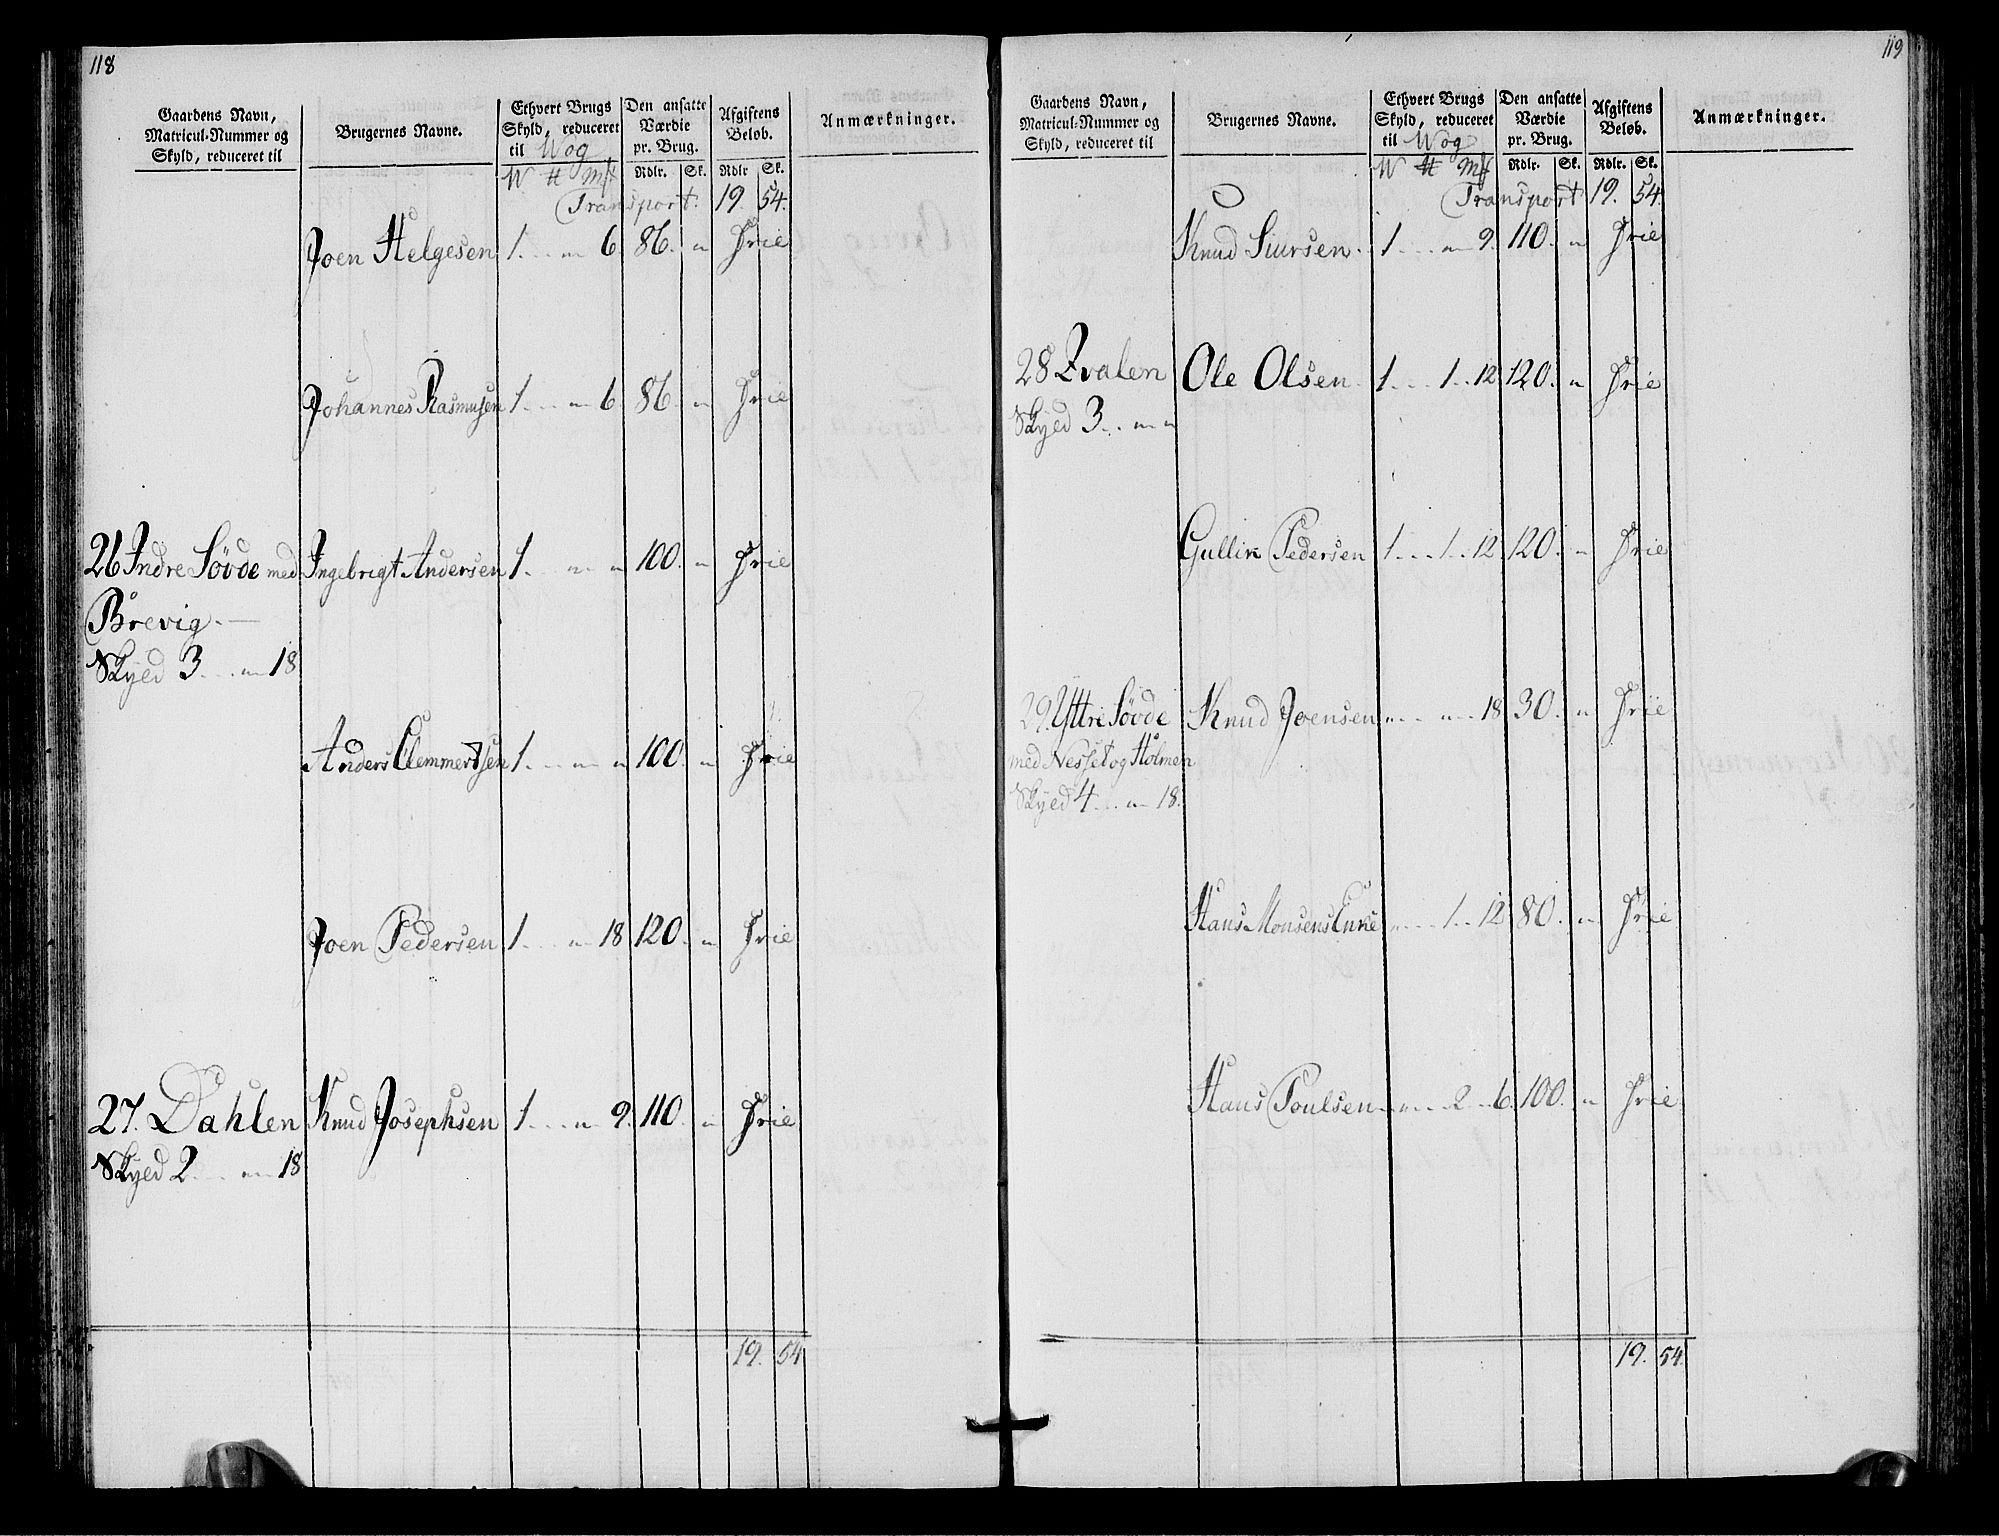 118
Gaardens Navn, Matricul-Nummer og Skyld, reduceret til
Brugernes Navne.
Ethvert Brugs Skyld, reduceret til Wog
Den ansatte Værdie pr. Brug.
Afgiftens Beløb.
Anmærkninger.
W H Mk Rdlr. Sk. Rdlr Sk.
Transport. 19. 54.
Joen Helgesen 1. . . „ 6. 86. „ Frie
Johannes Rasmusen 1. . . „ 6. 86. „ Frie
26 Indre Søvde med Ingebrigt Andersen 1. . . „ „ 100. „ Frie
Brevig.
Skyed 3. . . „ 18
Anders Clemmertsen 1. . . „ „ 100. „ Frie
Joen Pedersen 1. . . „ 18 120. „ Frie
27. Dahlen Knud Josephsen 1. . . „ 9. 110. „ Frie
Skyed 2. . . „ 18
19. 54
119
Gaardens Navn, Matricul-Nummer og Skyld, reduceret til
Brugernes Navne.
Ethvert Brugs Skyld, reduceret til Wog
Den ansatte Værdie pr. Brug.
Afgiftens Beløb.
Anmærkninger.
W H Mk Rdlr. Sk. Rdlr. Sk.
Transport 19. 54.
Knud Siursen. 1. . . „ 9. 110. „ Frie
28 Qvalen Ole Olsen. 1. . . 1. . 12 120. „ Frie
Skyed 3. . . „ „
Gullik Pedersen 1. . . 1. . 12 120. „ Frie
29. Yttre Søvde Knud Joensen „ . . „ . . 18 30. „ Frie
med Nesset og Holmen
Skyed 4. . . „ 18.
Hans Monsens Enke „ . . 1. . 12 80. „ Frie
Hans Poulsen „ . . 2. . 6. 100. „ Frie
19. 54.